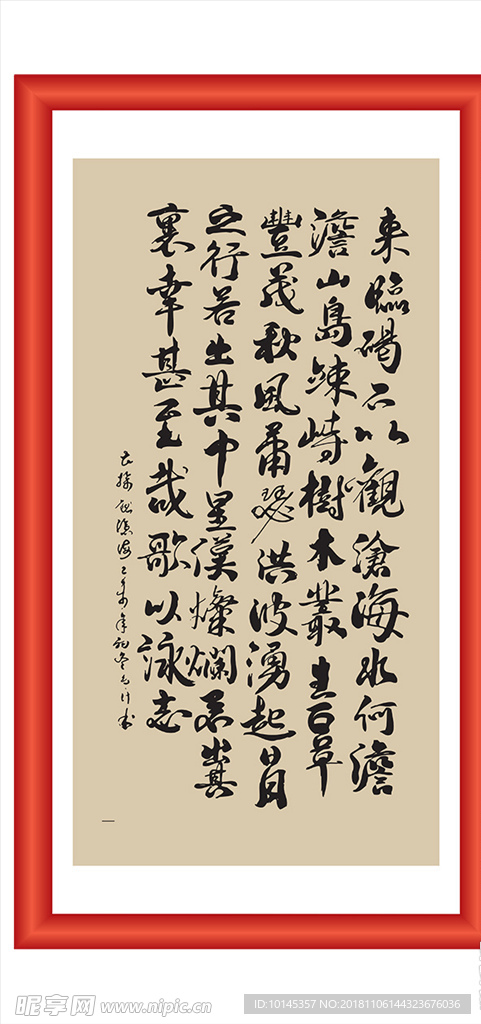 東臨碣石以觀滄海水何澹
澹山島竦峙樹木叢生百草
豐茂秋風蕭瑟洪波湧起日月
之行若出其中星漢燦爛若出其
裏幸甚至哉歌以詠志
曹操觀滄海 年初冬 書
昵享网 www.nipic.cn
ID:10145357 NO:20181106144323676036